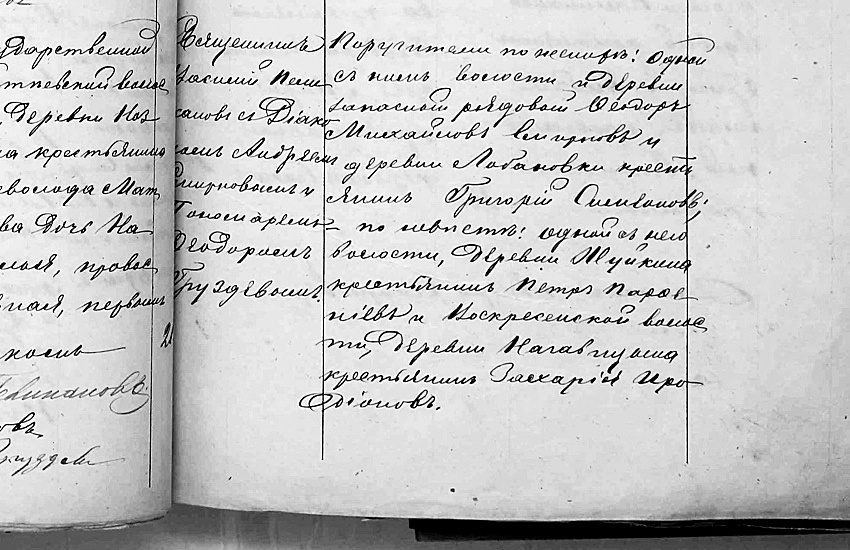 ударственной
волос
, деревни
на крестьянина
севолода Мат
ва дочь На
, правос
вная, первымъ
21
Священникъ
Василій
съ Діако
номъ Андреемъ
Смирновымъ и
Пономаремъ
Ѳеодоромъ
Груздевымъ.
Поручители по женихѣ: одной
съ нимъ волости и деревни
запасной рядовой Ѳеодоръ
Михайловъ Смирновъ и
деревни Лобановки кресть
янинъ Григорій Степановъ;
– по невѣстѣ: одной съ нею
волости, деревни Шуйкина
крестьянинъ Петръ Парѳе
ніевъ и Воскресенской волос
ти, деревни
крестьянинъ Захарій Иро
діоновъ.